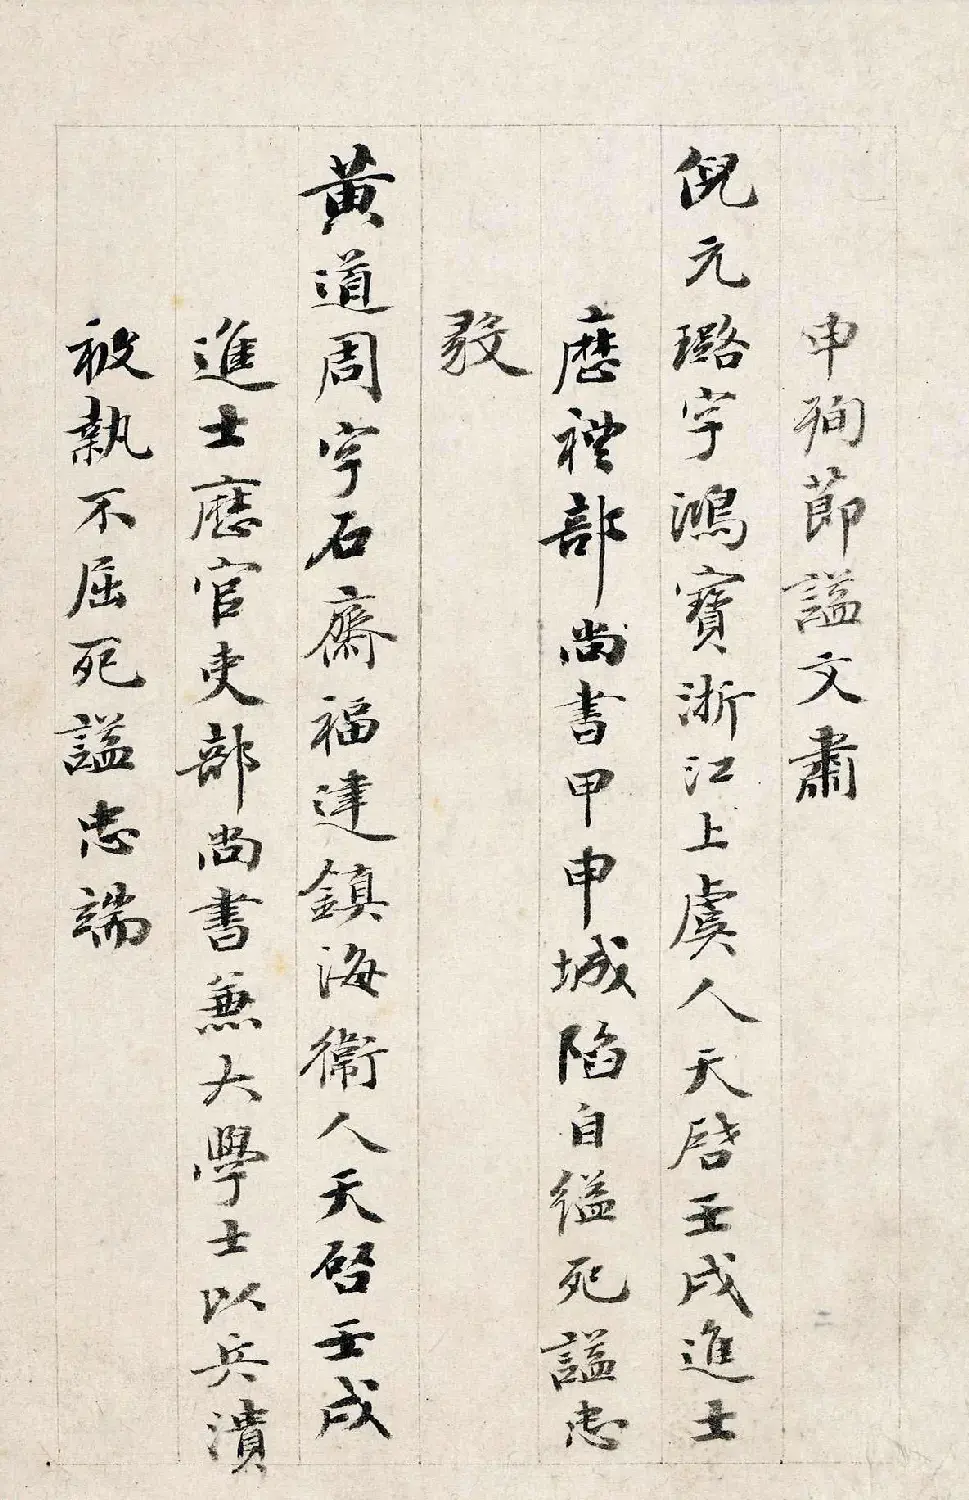 申殉節謚文肅
倪元璐字鴻寶浙江上虞人天啓壬戌進士
歷禮部尚書甲申城陷自縊死謚忠
黄道周字石齋福建鎮海衛人天啓壬戌
進士歷官吏部尚書兼大學士以兵潰
被執不屈死謚忠端